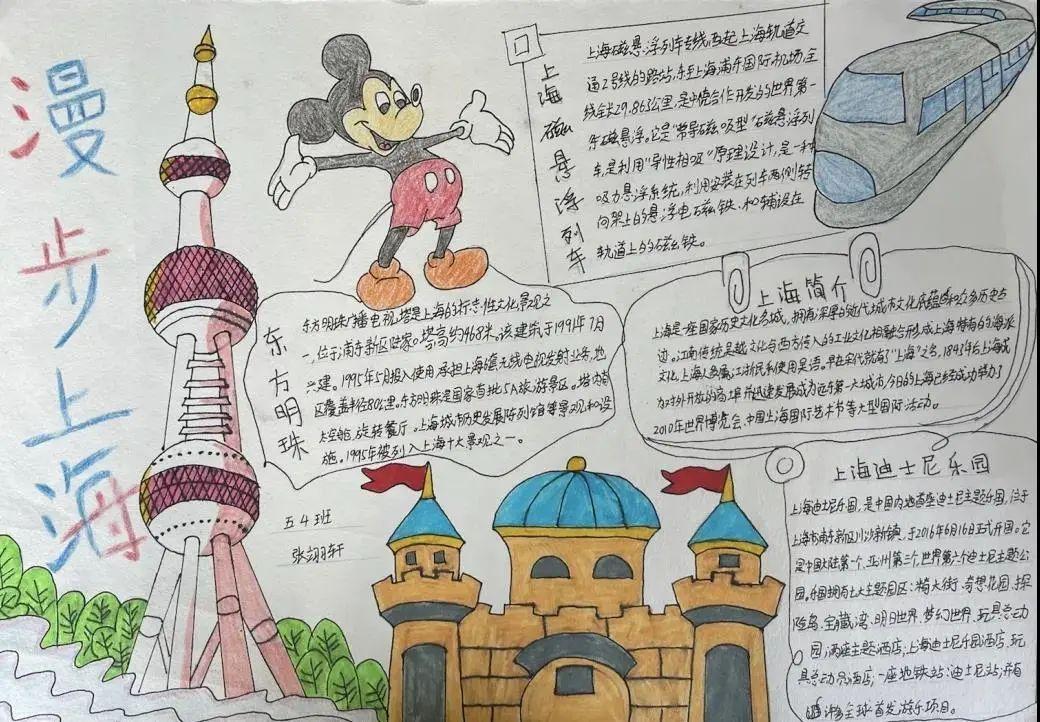 漫步上海
上海磁悬浮列车
上海磁悬浮列车专线西起上海轨道交
通2号线的路站,东至上海浦东国际机场,全
线全长29.863公里,是中德合作开发的世界第一
条磁悬浮。它是“常导磁吸型”磁悬浮列
车,是利用“异性相吸”原理设计,是一种
吸力悬浮系统,利用安装在列车两侧转
向架上的悬浮电磁铁、和铺设在
轨道上的磁铁。
东方明珠
东方明珠广播电视塔是上海的标志性文化景观之
一,位于浦东新区陆家。塔高约468米。该建筑于1991年7月
兴建。1995年5月投入使用承担上海 无线电视发射业务,地
区覆盖半径80公里。东方明珠是国家首批5A旅游景区。塔内有
太空舱,旋转餐厅,上海城市历史发展陈列馆等景观和设
施。1995年被列入上海十大景观之一。
上海简介
上海是一座国家历史文化名城,拥有深厚的近代城市文化底蕴和众多历史古
迹。江南传统吴越文化与西方传入的工业文化相融合形成上海特有的海派
文化,上海人多属江浙民系使用吴语。早在宋代就有“上海”之名,1843年后上海成
为对外开放的商埠并迅速发展成为远东第一大城市,今日的上海已经成功举办了
2010年世界博览会、中国上海国际艺术节等大型国际活动。
上海迪士尼乐园
上海迪士尼乐园,是中国内地首座迪士尼主题乐园,位于
上海市浦东新区川沙新镇,于2016年6月16日正式开园。它
是中国大陆第一个、亚洲第三个,世界第六个迪士尼主题公
园。乐园拥有七大主题园区:米奇大街、奇想花园、探
险岛、宝藏湾、明日世界、梦幻世界、玩具总动
园;两座主题酒店:上海迪士尼乐园酒店、玩
具总动员酒店;一座地铁站:迪士尼站;并有
全球首发游乐项目。
五4班
张翊轩